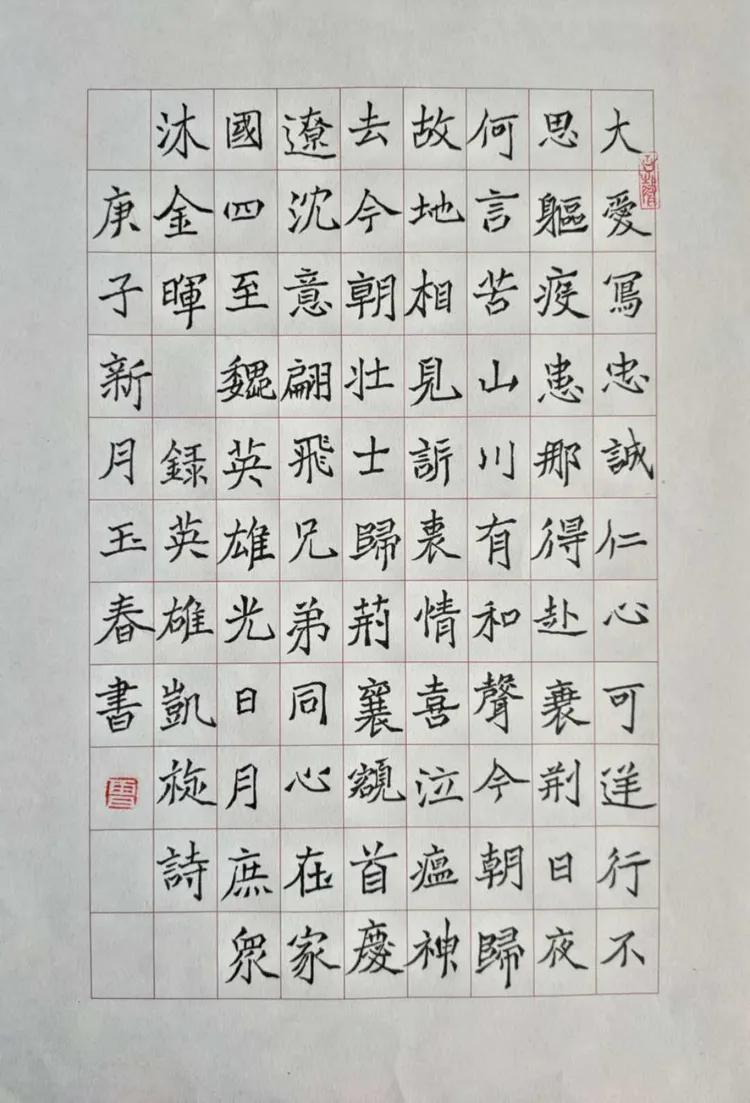 大愛冩忠誠仁心可逆行不
思軀疫患那得赴襄荆日夜
何言苦山川有和聲今朝歸
故地相見訢衷情喜泣瘟神
去今朝壮士歸荊襄額首慶
遼沈意翩飛兄弟同心在家
國四至魏英雄光日月庶眾
沐金暉 録英雄凱旋詩
庚子新月玉春書